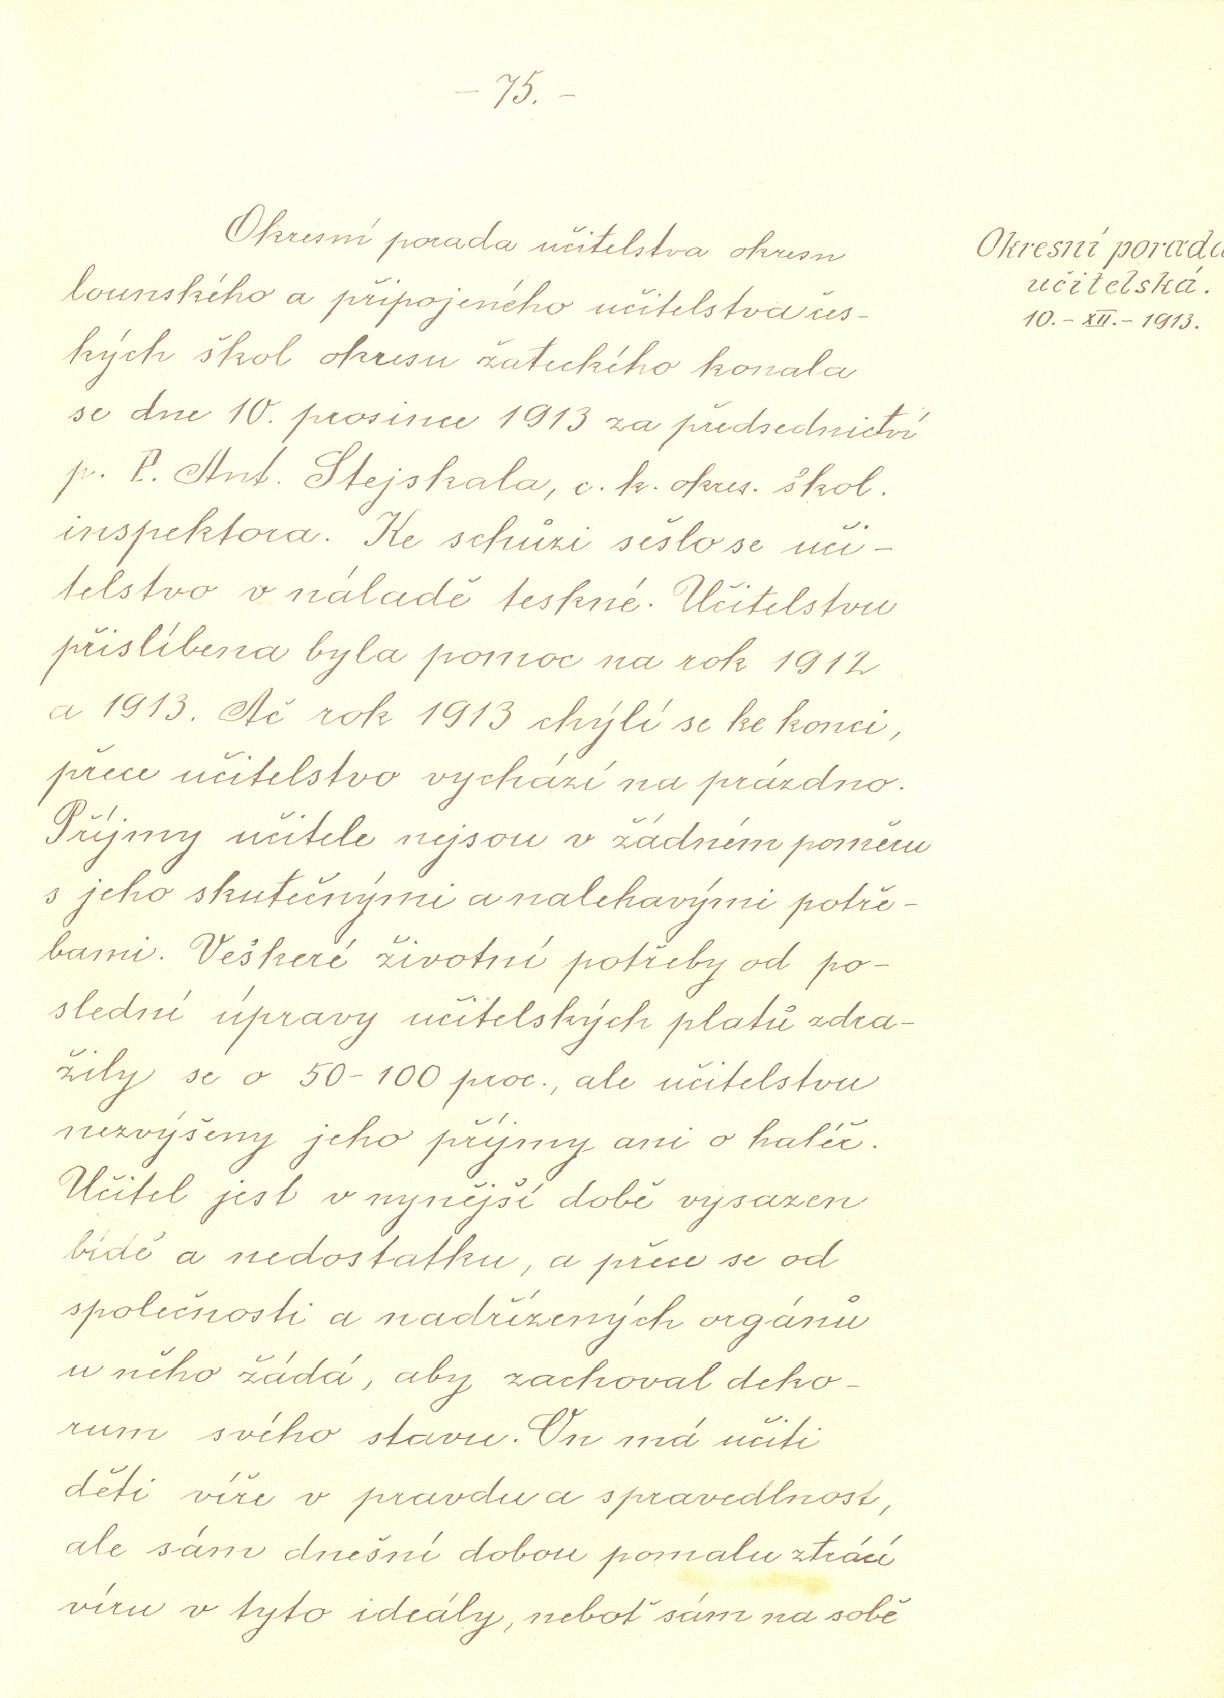 – 75. –
Okresní porada učitelstva okresu
lounského a připojeného učitelstva čes-
kých škol okresu žateckého konala
se dne 10. prosince 1913 za předsednictví
p. P. Ant. Stejskala, c. k. okres. škol.
inspektora. Ke schůzi sešlo se uči-
telstvo v náladě teskné. Učitelstvu
přislíbena byla pomoc na rok 1912
a 1913. Ač rok 1913 chýlí se ke konci,
přece učitelstvo vychází na prázdno.
Příjmy učitele nejsou v žádném poměru
s jeho skutečnými a nalehavými potře-
bami. Veškeré životní potřeby od po-
slední úpravy učitelských platů zdra-
žily se o 50-100 proc., ale učitelstvu
nezvýšeny jeho příjmy ani o haléř.
Učitel jest v nynější době vysazen
bídě a nedostatku, a přece se od
společnosti a nadřízených orgánů
u něho žádá, aby zachoval deko-
rum svého stavu. On má učiti
děti víře v pravdu a spravedlnost,
ale sám dnešní dobou pomalu ztrácí
víru v tyto ideály, neboť sám na sobě
Okresní porada
učitelská.
10. – XII. – 1913.